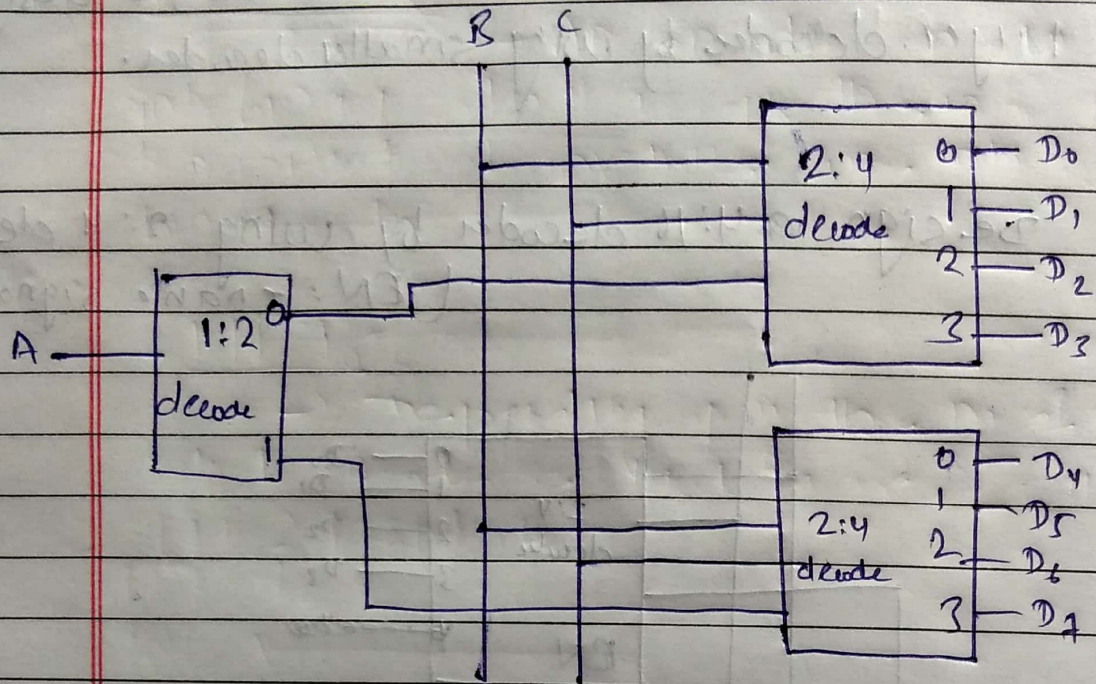 B C
2:4
decode
0 D0
1 D1
2 D2
3 D3
A
1:2
decode
0
1
2:4
decode
0 D4
1 D5
2 D6
3 D7